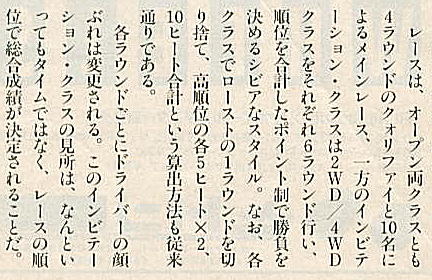 レースは、オープン両クラスとも
4ラウンドのクォリファイと10名に
よるメインレース、一方のインビテ
ーション・クラスは2WD/4WD
クラスをそれぞれ6ラウンド行い、
順位を合計したポイント制で勝負を
決めるシビアなスタイル。なお、各
クラスでローストの1ラウンドを切
り捨て、高順位の各5ヒート×2、
10ヒート合計という算出方法も従来
通りである。
各ラウンドごとにドライバーの顔
ぶれは変更される。このインビテー
ション・クラスの見所は、なんとい
ってもタイムではなく、レースの順
位で総合成績が決定されることだ。